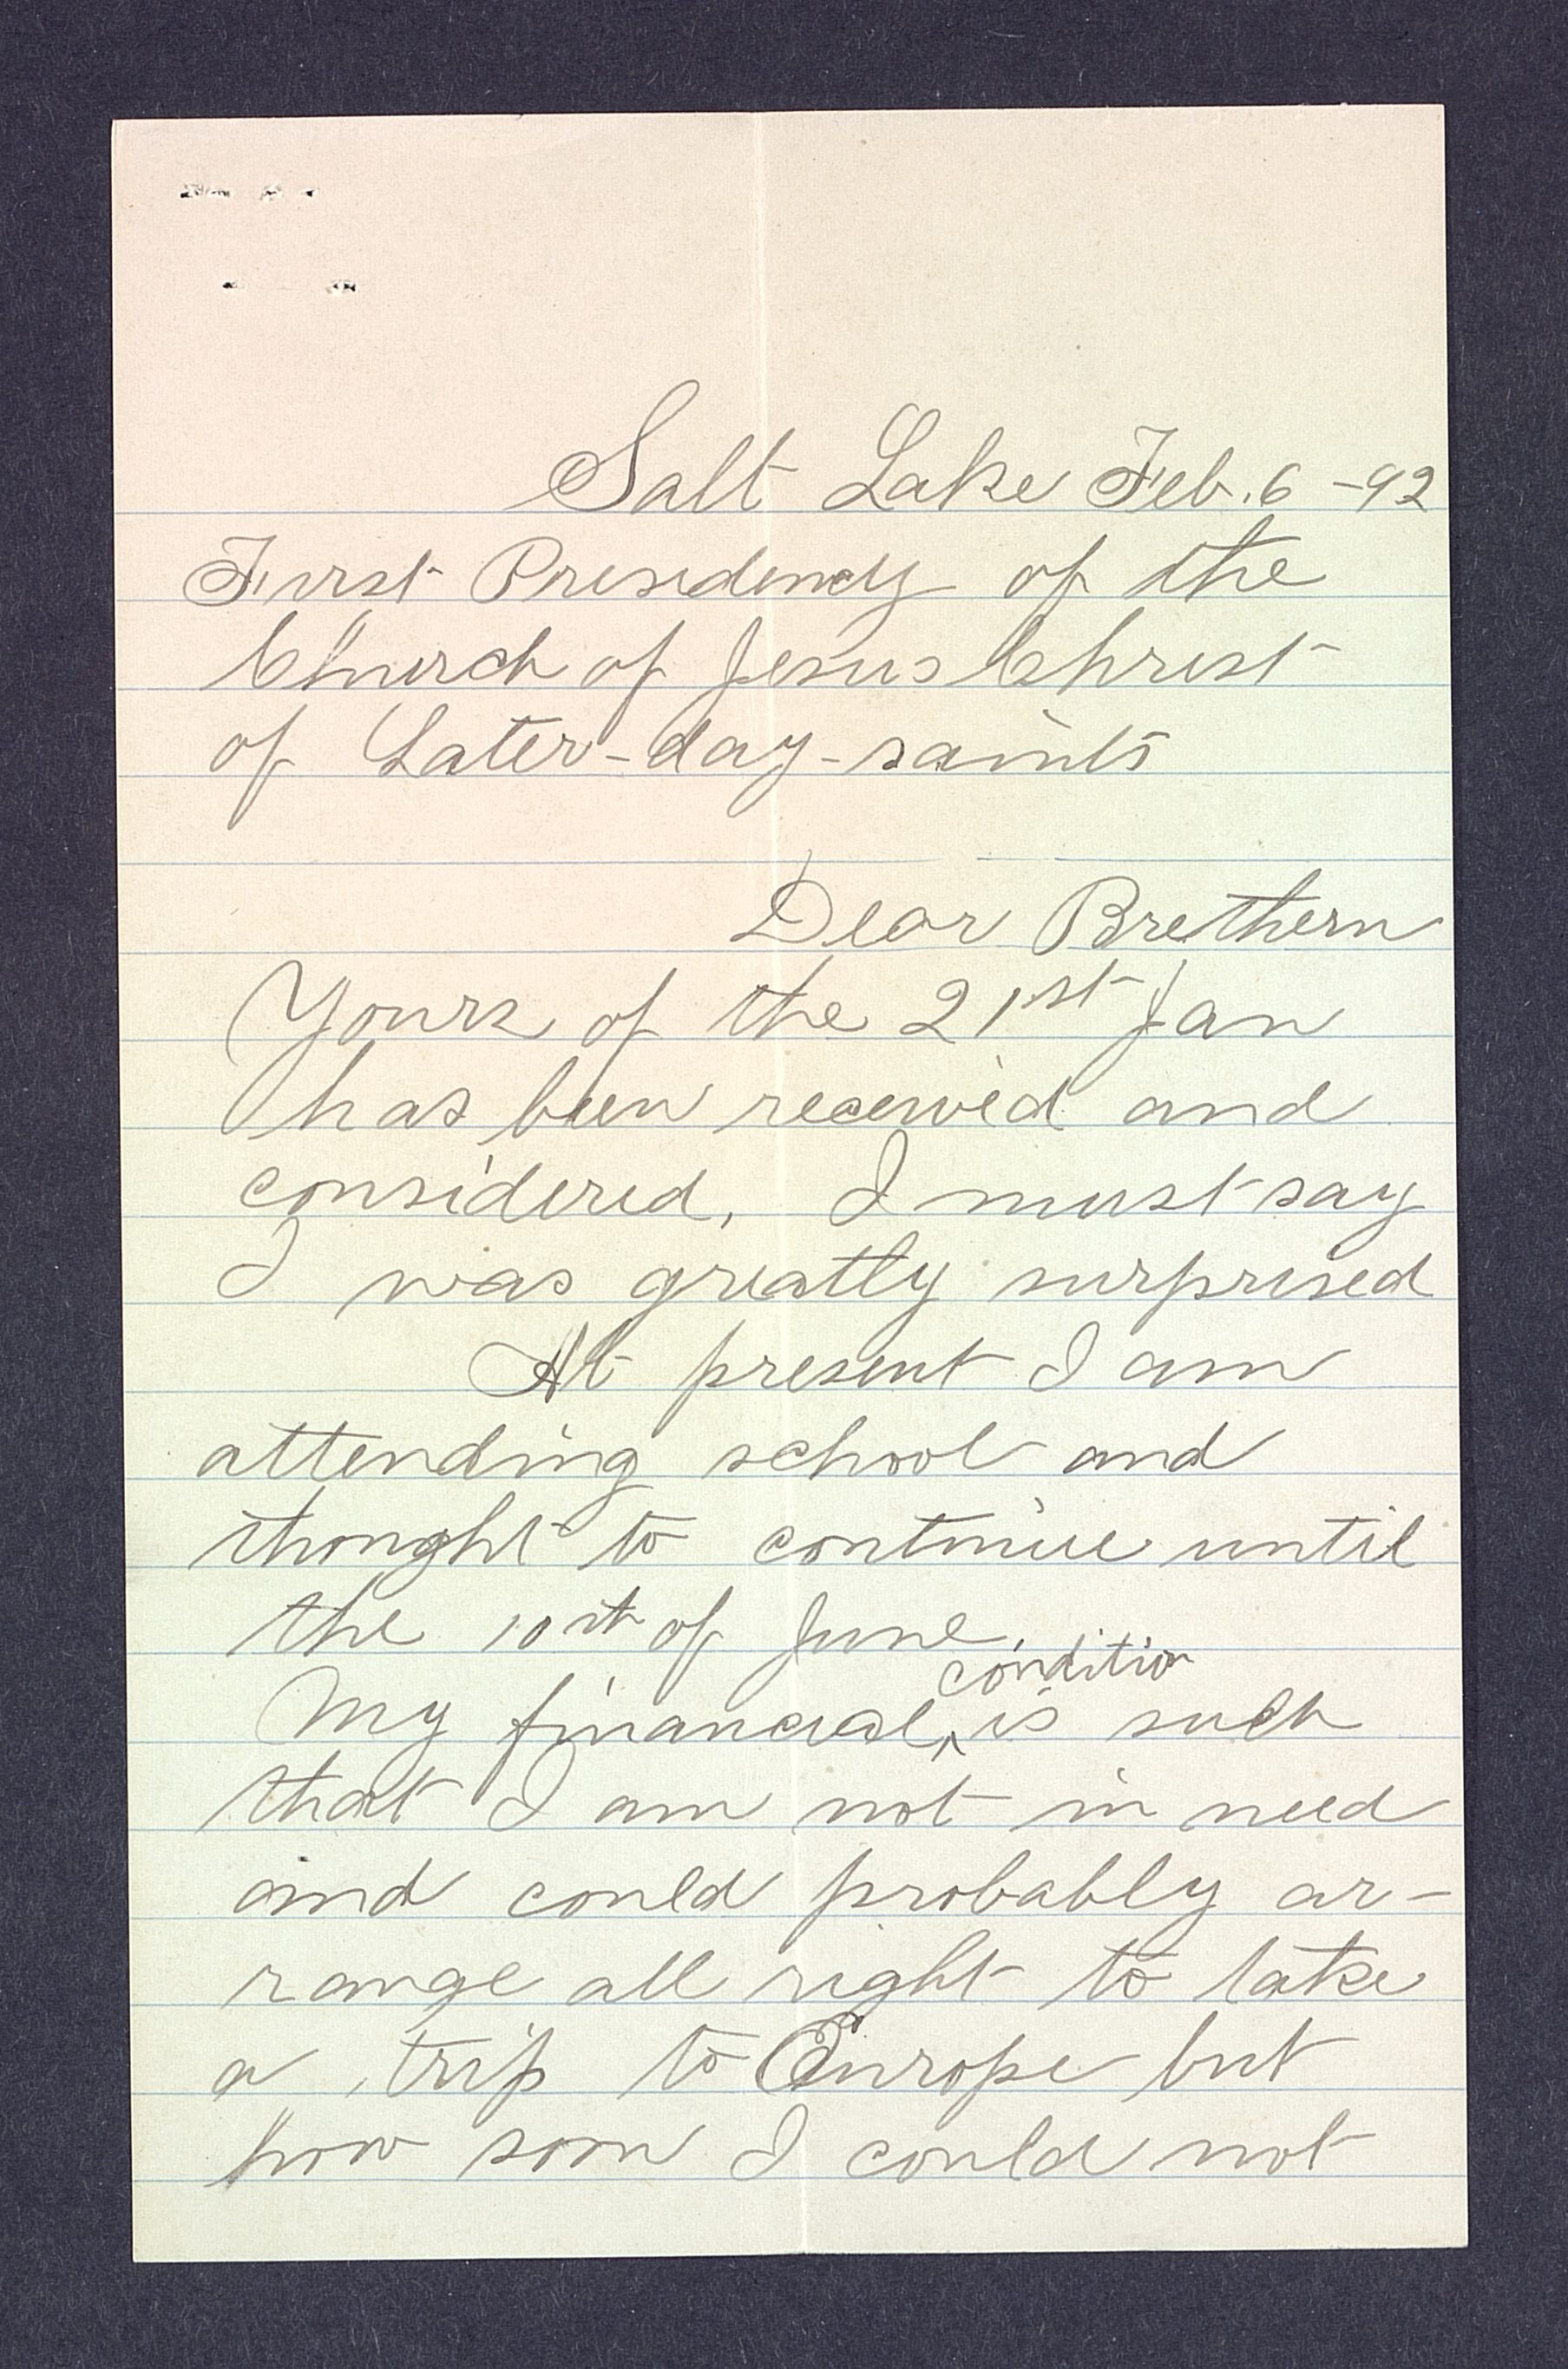 Salt Lake Feb. 6 -92
First Presidency of the
Church of Jesus Christ
of Later-day-saints
Dear Brethern
Yours of the 21st Jan
has been received and
considered, I must say
I was greatly surprised
At present I am
attending school and
thought to continue until
the 10st of June.
condition
My financial ^ is such
that I am not in need
and could probably ar-
range all right to take
a trip to Europe but
how soon I could not